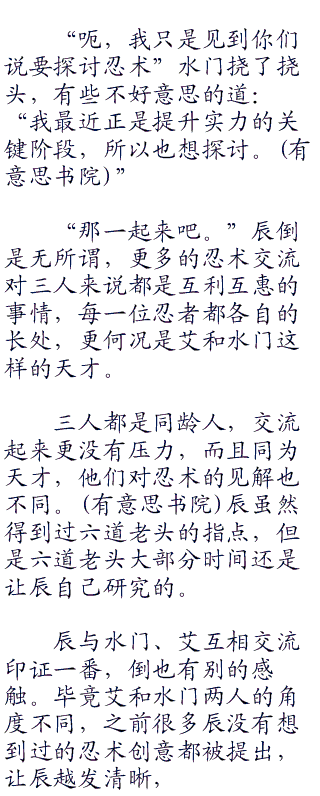 “呃，我只是见到你们
说要探讨忍术”水门挠了挠
头，有些不好意思的道：
“我最近正是提升实力的关
键阶段，所以也想探讨。(有
意思书院)”
“那一起来吧。”辰倒
是无所谓，更多的忍术交流
对三人来说都是互利互惠的
事情，每一位忍者都各自的
长处，更何况是艾和水门这
样的天才。
三人都是同龄人，交流
起来更没有压力，而且同为
天才，他们对忍术的见解也
不同。(有意思书院)辰虽然
得到过六道老头的指点，但
是六道老头大部分时间还是
让辰自己研究的。
辰与水门、艾互相交流
印证一番，倒也有别的感
触。毕竟艾和水门两人的角
度不同，之前很多辰没有想
到过的忍术创意都被提出，
让辰越发清晰，